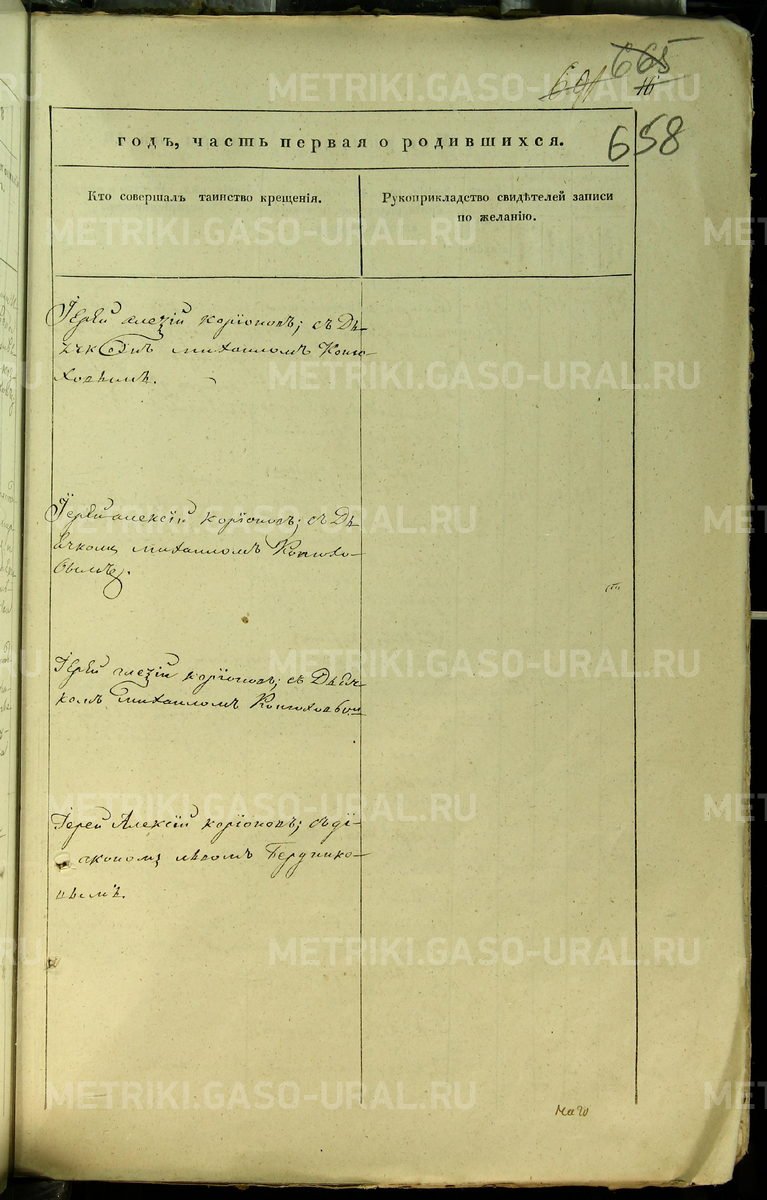 665
691
16
658
годъ, часть первая о родившихся.
Кто совершалъ таинство крещенія.
Рукоприкладство свидѣтелей записи
по желанію.
Іерей Алексій Коріоновъ; съ Дь-
ячкомъ Михаиломъ Коню-
ховымъ.
Іерей Алексій Коріоновъ; съ Дь-
ячкомъ Михаиломъ Конюхо-
вымъ.
Іерей Алексій Коріоновъ; съ Дьяч-
комъ Михаиломъ Конюховым
Іерей Алексій Коріоновъ; съ Ді-
акономъ
METRIKI.GASO-URAL.RU